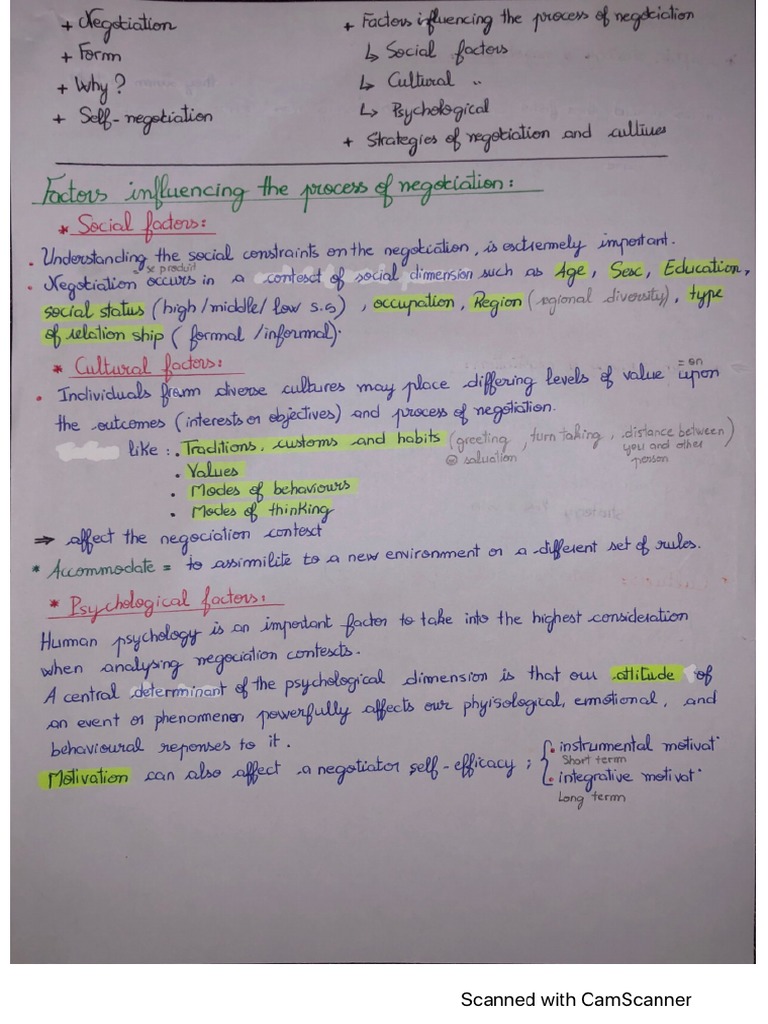 + Negotiation
+ Form
+ Why?
+ Self-negotiation
+ Factors influencing the process of negotiation
↳ Social factors
↳ Cultural "
↳ Psychological
+ Strategies of negotiation and cultures
Factors influencing the process of negotiation:
* Social factors:
. Understanding the social constraints on the negotiation, is extremely important.
se produit
. Negotiation occurs in a context of social dimension such as Age, Sex, Education,
social status (high/middle/low s.s), occupation, Region (regional diversity), type
of relation ship (formal/informal).
* Cultural factors:
= on
. Individuals from diverse cultures may place differing levels of value upon
the outcomes (interests or objectives) and process of negotiation.
like: . Traditions, customs and habits (greeting, turn taking, distance between)
saluation
you and other
person
. Values
. Modes of behaviours
. Modes of thinking
⇒ affect the negociation context
* Accommodate = to assimilite to a new environment or a different set of rules.
* Psychological factors:
Human psychology is an important factor to take into the highest consideration
when analysing negociation contexts.
A central determinant of the psychological dimension is that our attitude of
an event or phenomenen powerfully affects our phyisological, emotional, and
behavioural reponses to it.
Motivation can also affect a negotiator self-efficacy;
. instrumental motivat°
Short term
. integrative motivat°
Long term
Scanned with CamScanner